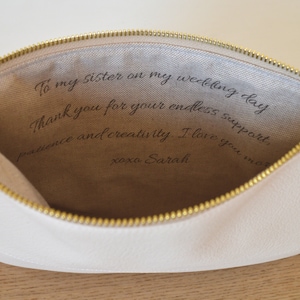 To my sister on my wedding day
Thank you for your endless support,
patience and creativity. I love you
xoxo Sarah